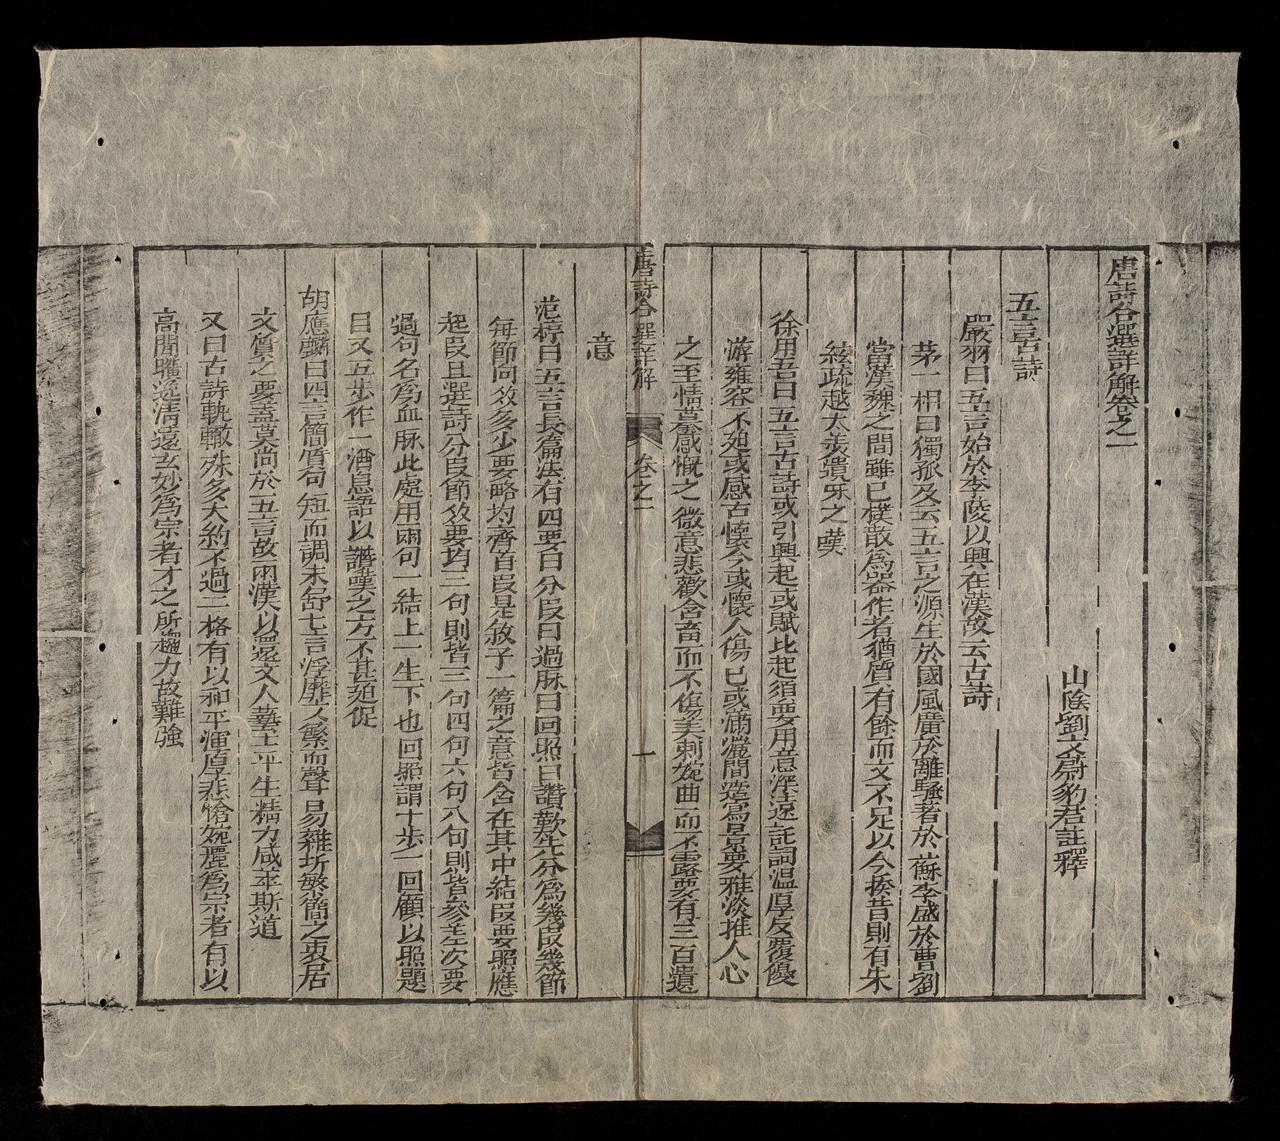 唐詩合選詳解卷之一
山陰劉文蔚豹君註釋
五言古詩
嚴羽曰五言始於李陵以興在漢故云古詩
茅一相曰獨孤及云五言之源生於國風廣於離騷著於蘇李盛於曹劉
當漢魏之間雖已樸散爲器作者猶質有餘而文不足以今揆昔則有朱
絃疏越太羮遺味之嘆
徐用吾曰五言古詩或引興起或賦比起須要用意深遠託詞温厚反覆優
游雍容不廹或感古懷今或懷人傷已或瀟灑間造寫景要雅淡推人心
之至情摹感慨之微意悲歡含畜而不傷美刺婉曲而不露要有三百遺
意
唐詩合選詳解 卷之一 一
范梈曰五言長篇法有四要曰分叚曰過脉曰回照曰讚歎先分爲幾叚幾節
每節句數多少要略均齊首叚是敘子一篇之意皆含在其中結叚要照應
起叚且選詩分叚節數要均三句則皆三句四句六句八句則皆參差次要
過句名爲血脉此處用兩句一結上一生下也回照謂十歩一回顧以照題
目又五歩作一消息語以讚嘆之方不甚廹促
胡應麟曰四言簡質句短而調未舒七言浮靡文繁而聲易雜折繁簡之衷居
文質之要蓋莫尚於五言故兩漢以還文人藝士平生精力咸萃斯道
又曰古詩軌轍殊多大約不過二格有以和平渾厚悲愴婉麗爲宗者有以
高閒曠逸清遠玄妙爲宗者才之所趨力故難強